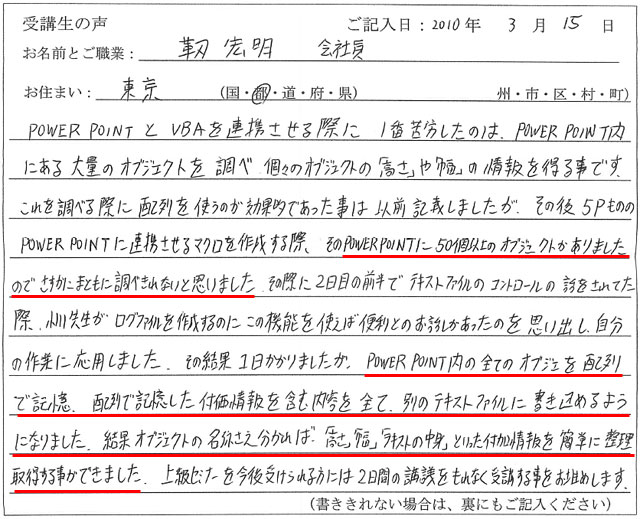 受講生の声　ご記入日：2010年 3月 15日
お名前とご職業： 靭 宏明　会社員
お住まい： 東京 （国・都・道・府・県）　州・市・区・村・町）
POWER POINTとVBAを連携させる際に 1番苦労したのは、POWER POINT内
にある大量のオブジェクトを調べ 個々のオブジェクトの「高さ」や「幅」の情報を得る事です。
これを調べる際に配列を使うのが効果的であった事は以前記載しましたが、その後5Pものの
POWER POINTに連携させるマクロを作成する際、そのPOWERPOINTに50個以上のオブジェクトがありました
のでさすがにまともに調べきれないと思いました。その際に2日目の前半でテキストファイルのコントロールの話をされてた
際、小川先生がログファイルを作成するのにこの機能を使えば便利とのお話しがあったのを思い出し、自分
の作業に応用しました。その結果1日かかりましたが、POWER POINT内の全てのオブジェを配列
で記憶、配列で記憶した付価情報を含む内容を全て、別のテキストファイルに書き込めるよう
になりました。結果オブジェクトの名称さえ分かれば、「高さ」「幅」「テキストの中身」といった付加情報を簡単に整理
取得する事ができました。上級ビデオを今後受けられる方には2日間の講議をもれなく受講する事をお奨めします。
（書ききれない場合は、裏にもご記入ください）